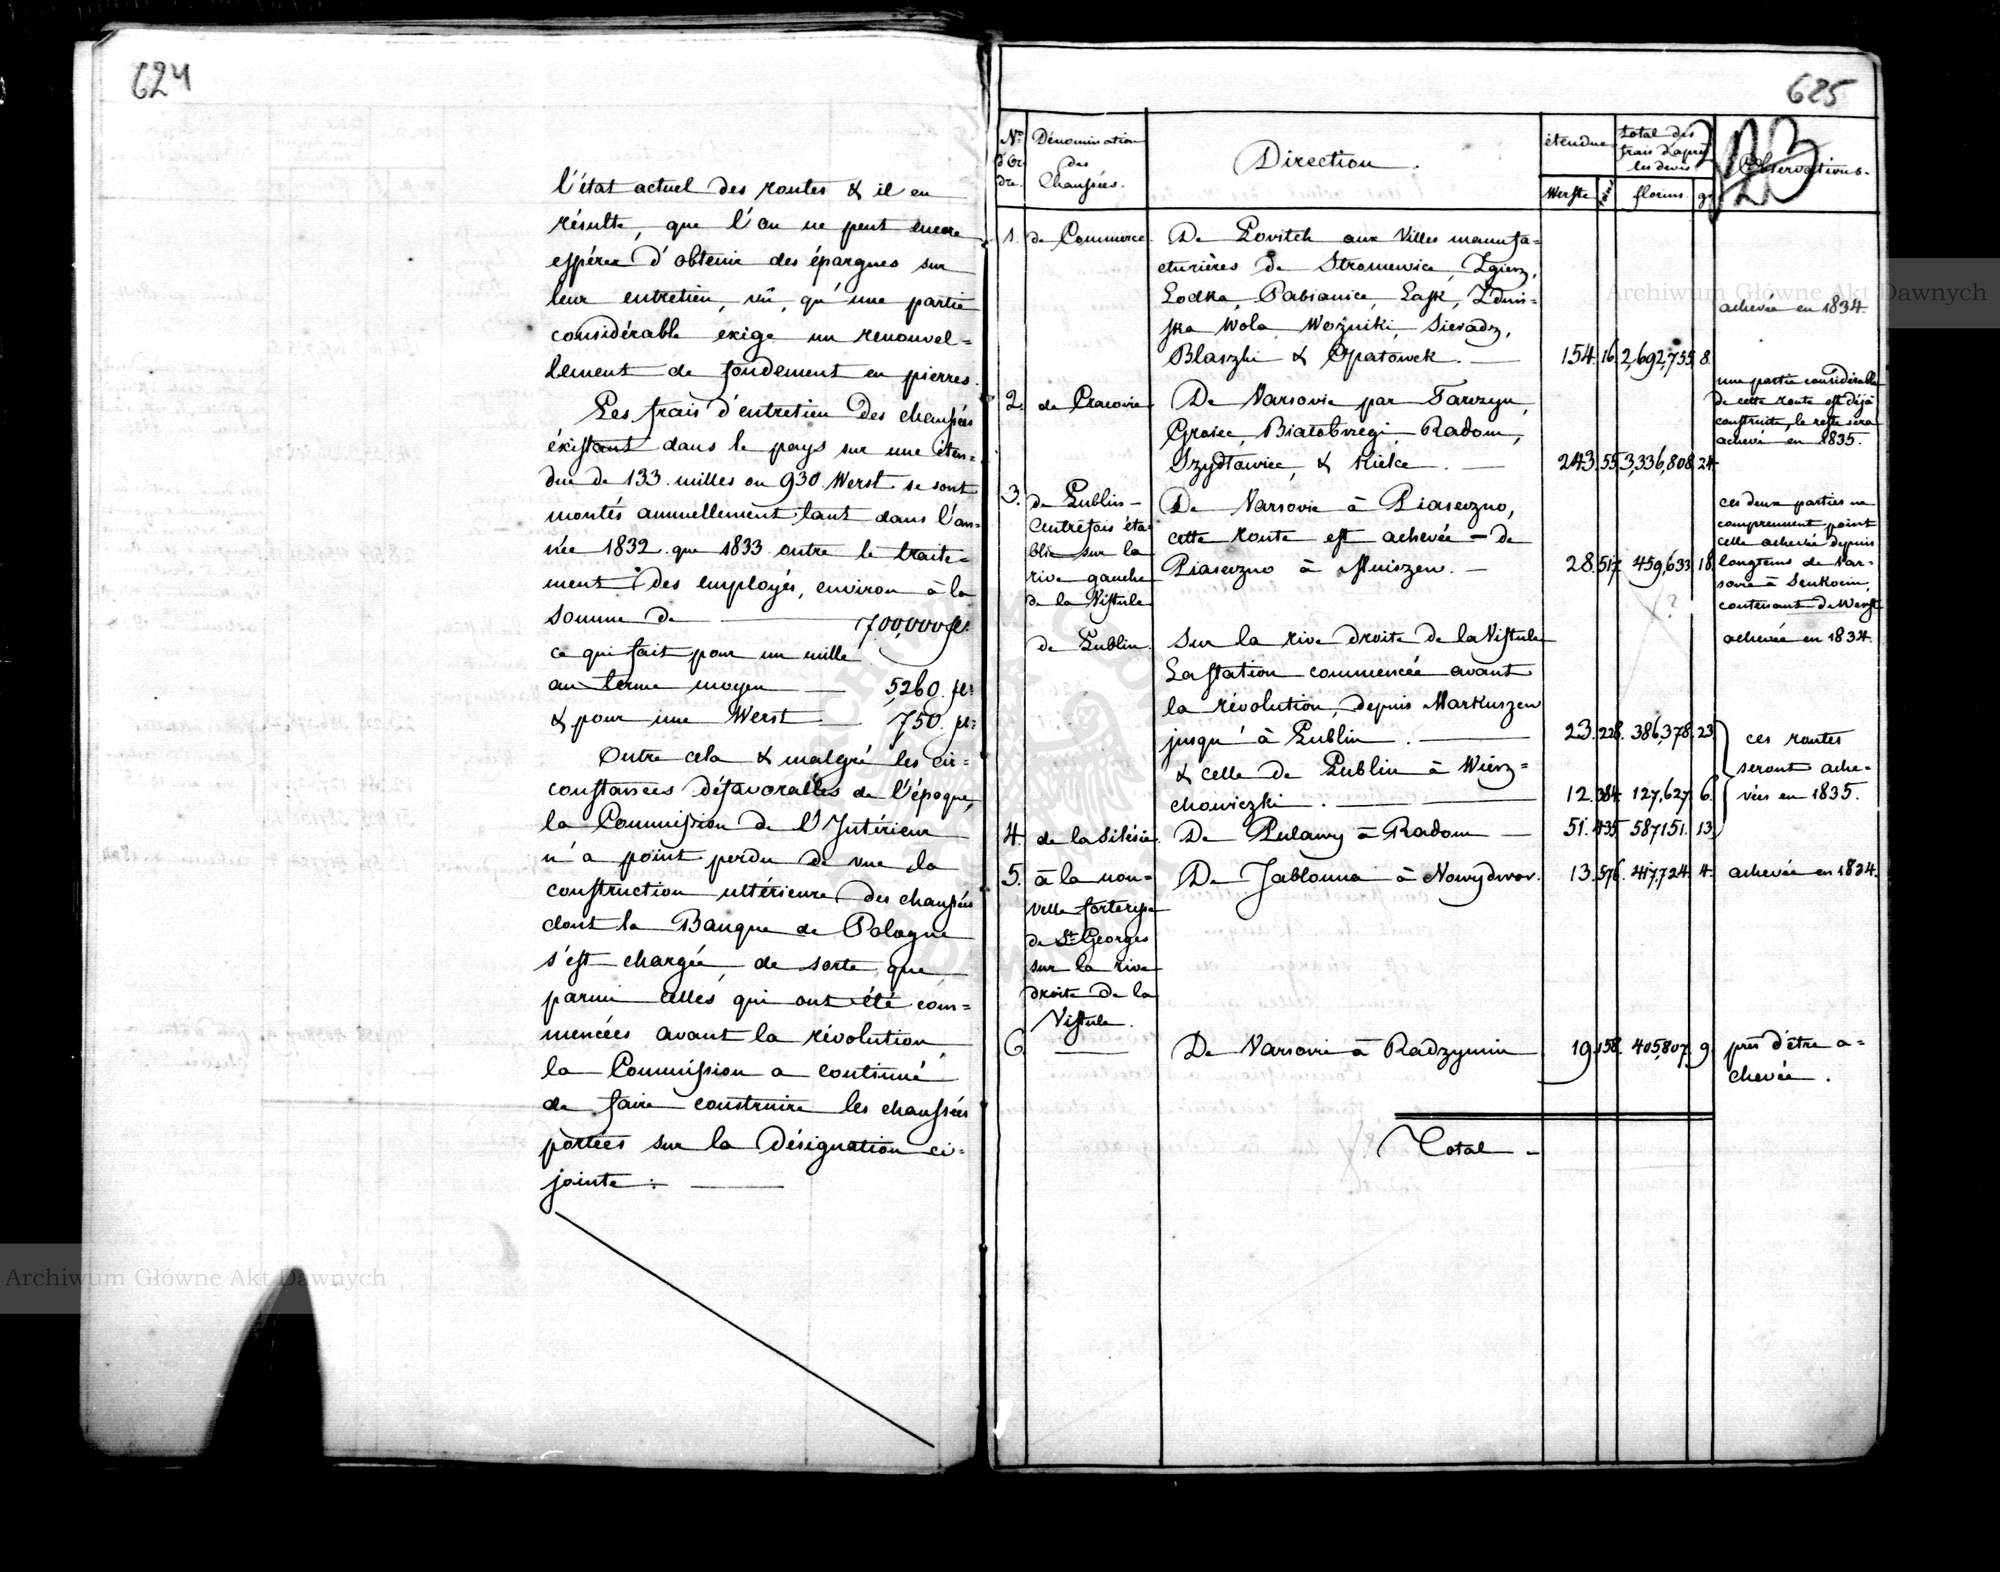 624
l'état actuel des routes & il en
résulte, que l'on ne peut encore
espérer d'obtenir des épargnes sur
leur entretien, vû, qu'une partie
considérable exige un renouvel=
lement de fondement en pierres.
Les frais d'entretien des chaussées
éxistant dans le pays sur une éten=
due de 133 milles ou 930 Werst se sont
montés annuellement tant dans l'an=
née 1832 que 1833 outre le traite=
ment des employés, environ à la
somme de 700,000 fl:
ce qui fait pour un mille
au terme moyen 5,260. fl:
& pour une Werst 750. fl:
Outre cela & malgré les cir=
constances défavorables de l'époque,
la Commission de l'Intérieur
n'a point perdu de vue la
construction ultérieure des chaussées
dont la Banque de Pologne
s'est chargée, de sorte que
parmi celles qui ont été com=
mencées avant la révolution
la Commission a continué
de faire construire les chaussées
portées sur la désignation ci=
jointe:
625
Nro d'Or dre.
Dénomination des Chaussées.
Direction.
étendue
Werste
total des frais d'après les devis
florins
gr
Observations.
1. de Commerce. De Lovitch aux Villes manufa=
cturières de Strumevice, Zgierz,
Lodka, Pabianice, Lask, Zduns=
ska Wola, Wozniki, Sieradz,
Blaszki & Opatówek. 154. 16. 2,692,735 8
achevée en 1834.
2. de Cracovie De Varsovie par Tarczyn,
Groice, Biatobrzegi, Radom,
Szydtowiec, & Kielce. 243. 55 3,336,808 24
une partie considérable
de cette route est déjà
construite, le reste sera
achevé en 1835.
3. de Lublin
autrefois éta
blie sur la
rive gauche
de la Vistule
De Varsovie à Piaseczno,
cette route est achevée - de
Piaseczno à Mniszew. 28. 517. 459,633 18
ces deux parties ne
comprennent point
celle achevée depuis
longtems de Var=
sovie à Senkocin,
contenant de Werst
de Lublin. Sur la rive droite de la Vistule
La station commencée avant
la révolution, depuis Markuszew
jusqu'à Lublin. 23. 228. 386,378. 23
achevée en 1834.
& celle de Lublin à Wierz=
chowiczki. 12. 384. 127,627. 6.
4. de la Silésie. De Pulawy à Radom 51. 435. 587151. 13
ces routes
seront ache=
vées en 1835.
5. à la nou=
velle forteresse
de St Georges
sur la rive
droite de la
Vistule.
De Jablonna à Nowydwor. 13. 576. 417,724. 4. achevée en 1834.
6. De Varsovie à Radzymin 19. 158. 405,807. 9. près d'être a=
chevée.
Total
Archiwum Główne Akt Dawnych
Archiwum Główne Akt Dawnych